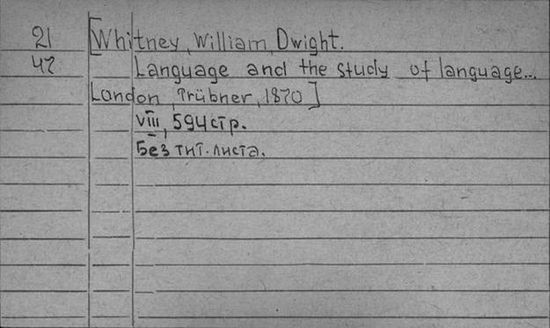 21 [Whitney, William Dwight.
47 Language and the study of language...
London, Trübner, 1870]
VIII, 594 стр.
Без тит. листа.